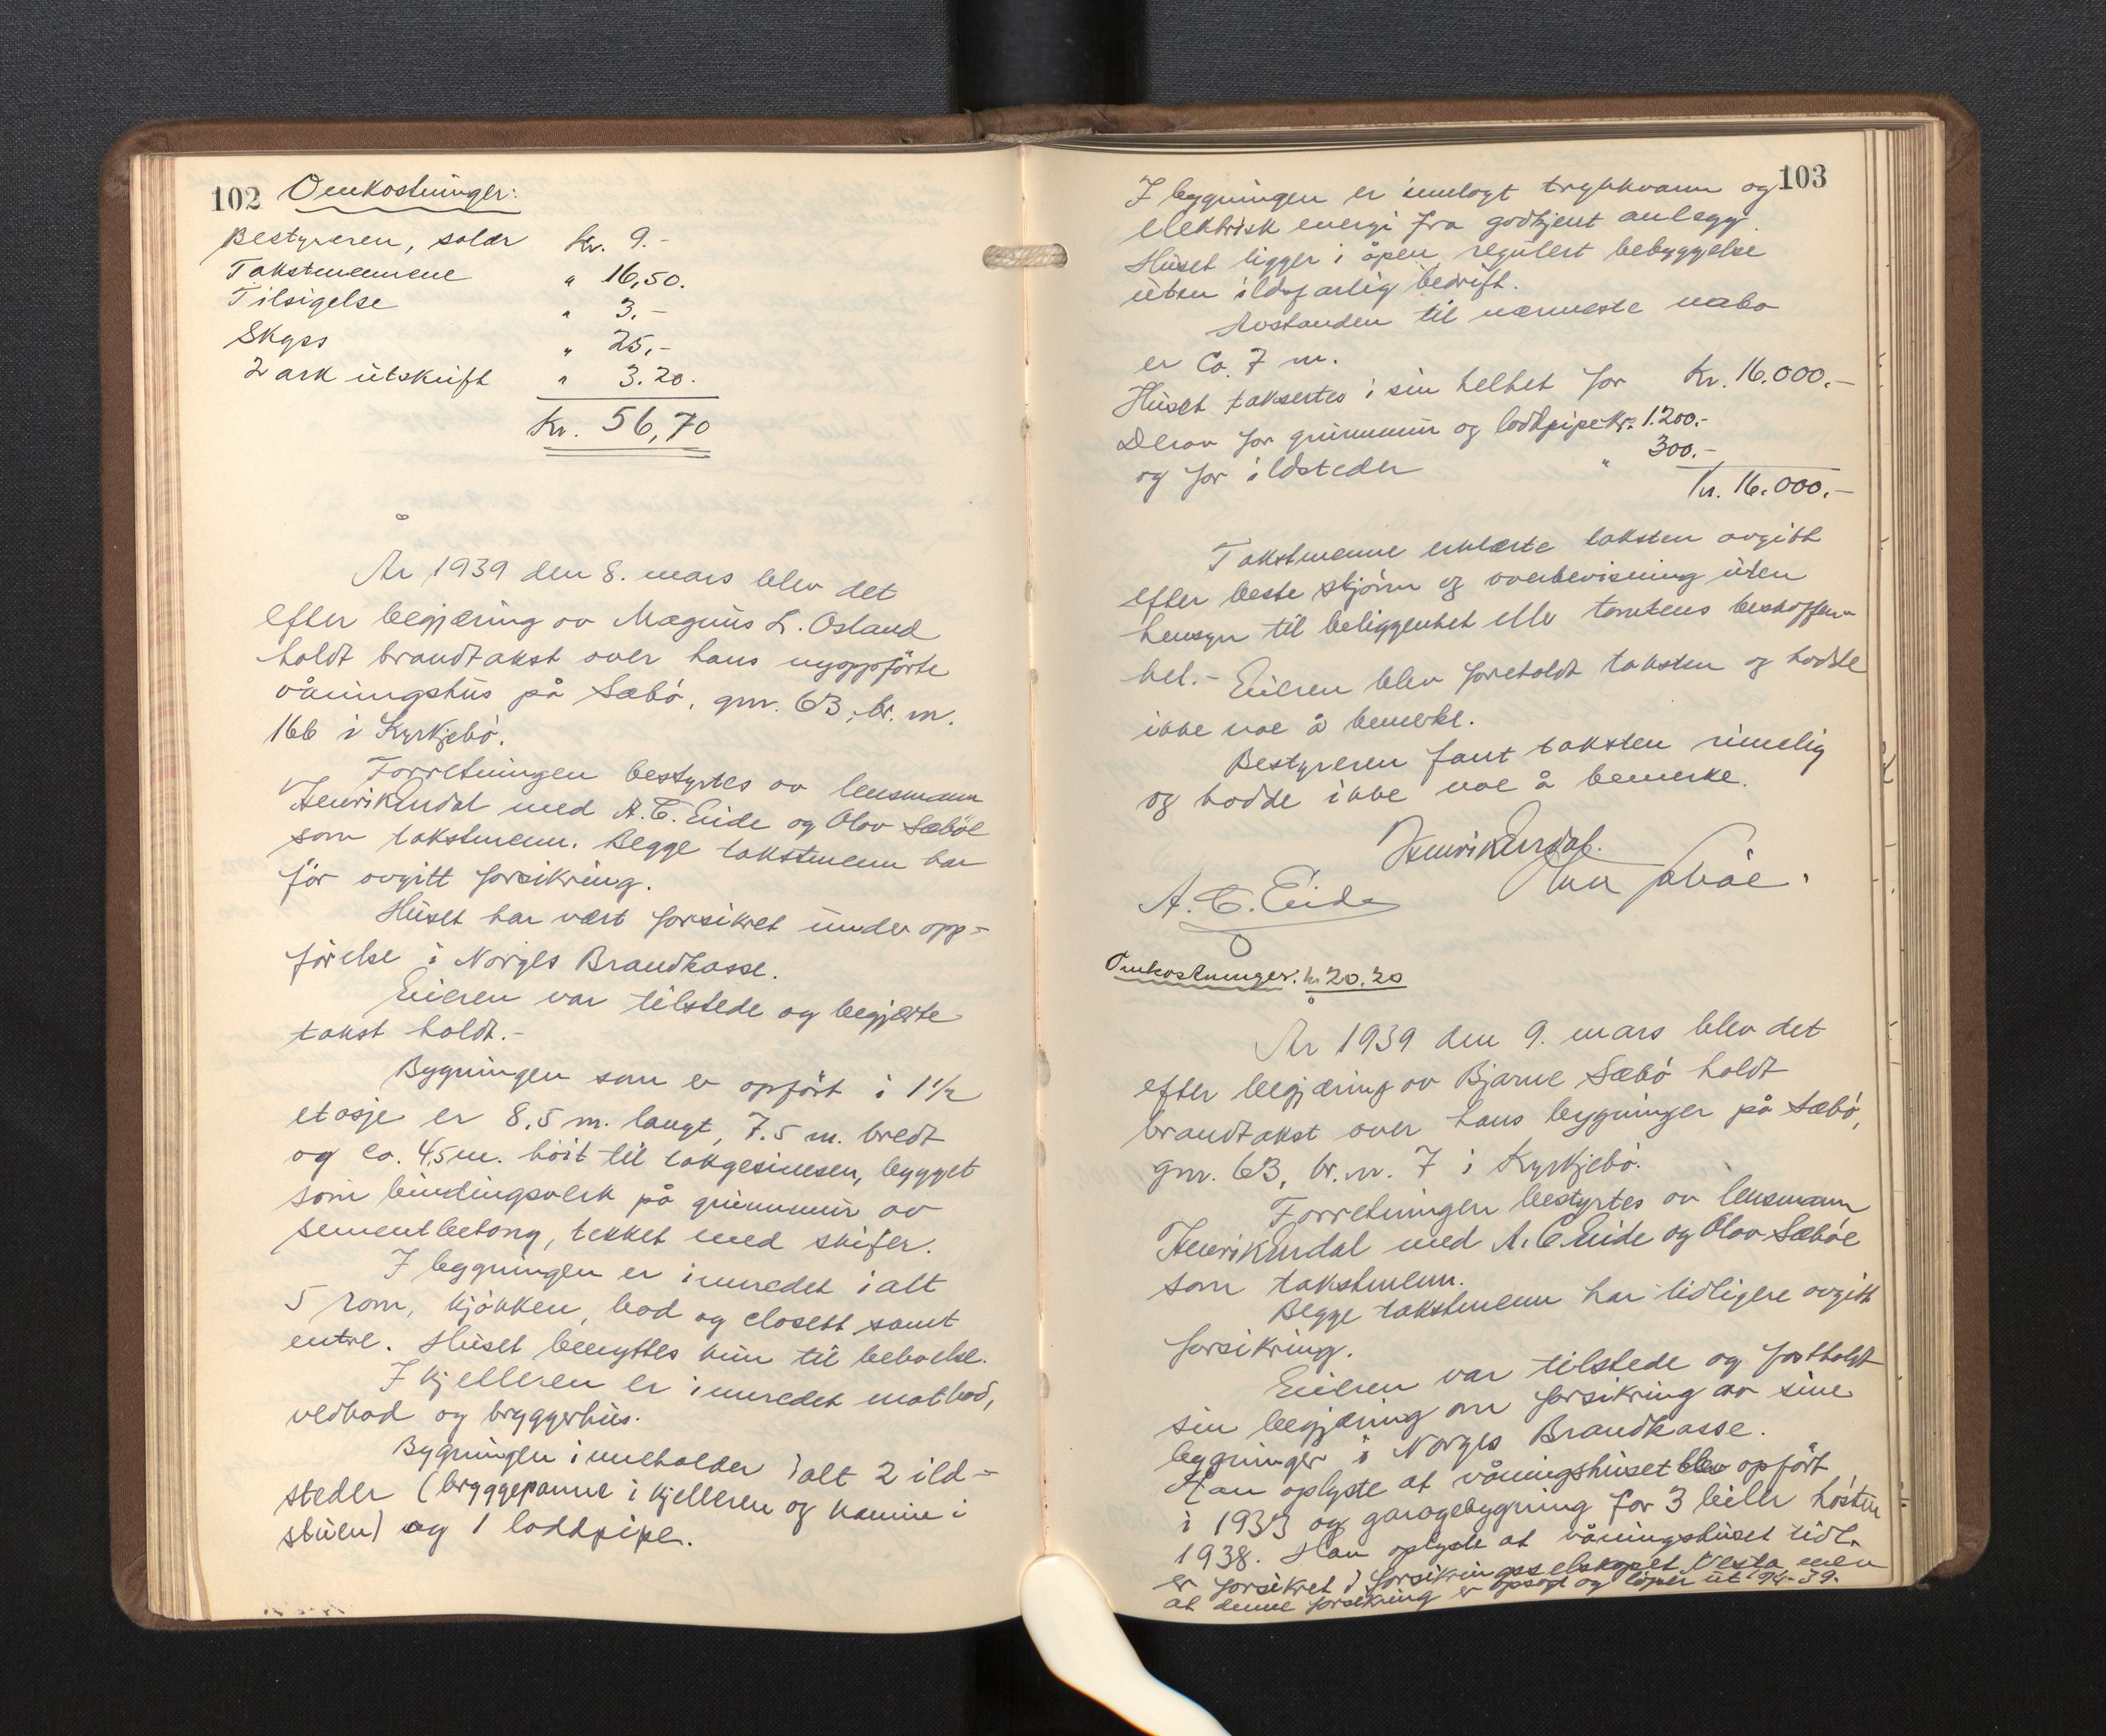 102 Omkostninger:
Bestyreren, salær Kr. 9.-
Takstmennene " 16,50.
Tilsigelse " 3,-
Skyss " 25,-
2 ark utskrift " 3.20.
Kr. 56,70
År 1939 den 8. mars blev det
efter begjæring av Magnus L. Osland
holdt brandtakst over hans nyoppførte
våningshus på Sæbø, gnr. 63, br. nr.
166 i Kyrkjebø.
Forretningen bestyrtes av lensmann
Henrik Endal med A. C. Eide og Olav Sæbøe
som takstmenn. Begge takstmenn har
før avgitt forsikring.
Huset har vært forsikret under opp-
førelse i Norges Brandkasse.
Eieren var tilstede og begjærte
takst holdt.-
Bygningen som er opført i 1½
etasje er 8,5 m. langt, 7.5 m. bredt
og ca. 4,5 m. høit til takgesimsen, bygget
som bindingsverk på grunnmur av
sementbetong, tekket med skifer.
I bygningen er innredet ialt
5 rom, kjøkken, bod og closett samt
entre. Huset benyttes kun til beboelse.
I kjelleren er innredet matbod,
vedbod og bryggerhus.
Bygningen inneholder ialt 2 ild-
steder (bryggepanne i kjelleren og kamin i
stuen) og 1 loddpipe.
103
I bygningen er innlagt trykkvann og
elektrisk energi fra godkjent anlegg.
Huset ligger i åpen, regulert bebyggelse
uten ildsfarlig bedrift.
Avstanden til nærmeste nabo
er ca. 7 m.
Huset taksertes i sin helhet for Kr. 16.000.-
Derav for grunnmur og loddpipe Kr. 1.200.-
og for ildsteder " 300.-
Kr. 16.000.-
Takstmenne erklærte taksten avgitt
efter beste skjønn og overbevisning uten
hensyn til beliggenhet eller tomtens beskaffen-
het.- Eieren blev foreholdt taksten og hadde
ikke noe å bemerke.
Bestyreren fant taksten rimelig
og hadde ikke noe å bemerke.
Henrik Endal.
A. C. Eide Olav Sæbøe.
Omkostninger: kr 20.20
År 1939 den 9. mars blev det
efter begjæring av Bjarne Sæbø holdt
brandtakst over hans bygninger på Sæbø,
gnr. 63, br. nr. 7 i Kyrkjebø.
Forretningen bestyrtes av lensmann
Henrik Endal med A. C. Eide og Olav Sæbøe
som takstmenn.
Begge takstmenn har tidligere avgitt
forsikring.
Eieren var tilstede og fastholdt
sin begjæring om forsikring av sine
bygninger i Norges Brandkasse.
Han oplyste at våningshuset blev opført
i 1933 og garagebygning for 3 biler høsten
1938. Han oplyste at våningshuset tidl.
er forsikret i forsikringsselskapet Vesta men
at denne forsikring er opsagt og løper ut 9/4-39.